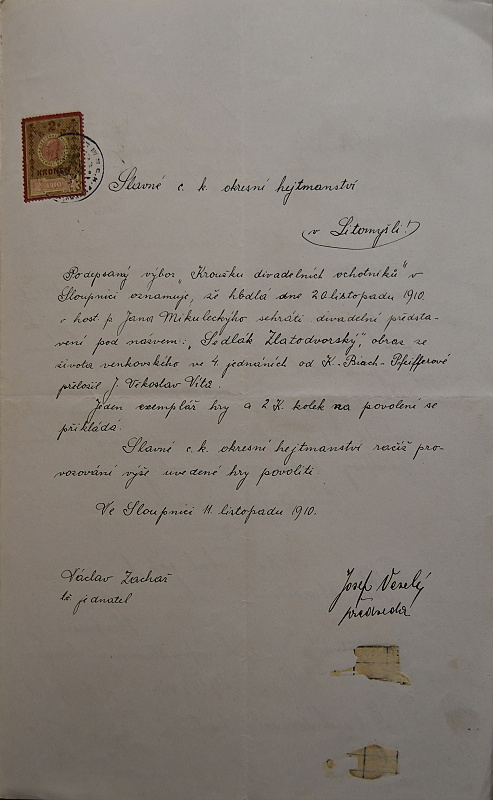 2
KRONEN
1910
Slavné c. k. okresní hejtmanství
v Litomyšli!
Podepsaný výbor „Kroužku divadelních ochotníků“ v
Sloupnici oznamuje, že hodlá dne 20 listopadu 1910.
v host. p. Jana Mikuleckýho sehráti divadelní předsta-
vení pod názvem: „Sedlák Zlatodvorský“, obraz ze
života venkovského ve 4 jednáních od K. Birch-Pfeifferové
přeložil J. Věkoslav Vlta.
Jeden exemplář hry a 2 K. kolek na povolení se
přikládá.
Slavné c. k. okresní hejtmanství račiž pro-
vozování výše uvedené hry povoliti.
Ve Sloupnici 11. listopadu 1910.
Václav Zachař
tč. jednatel
Josef Veselý
předseda